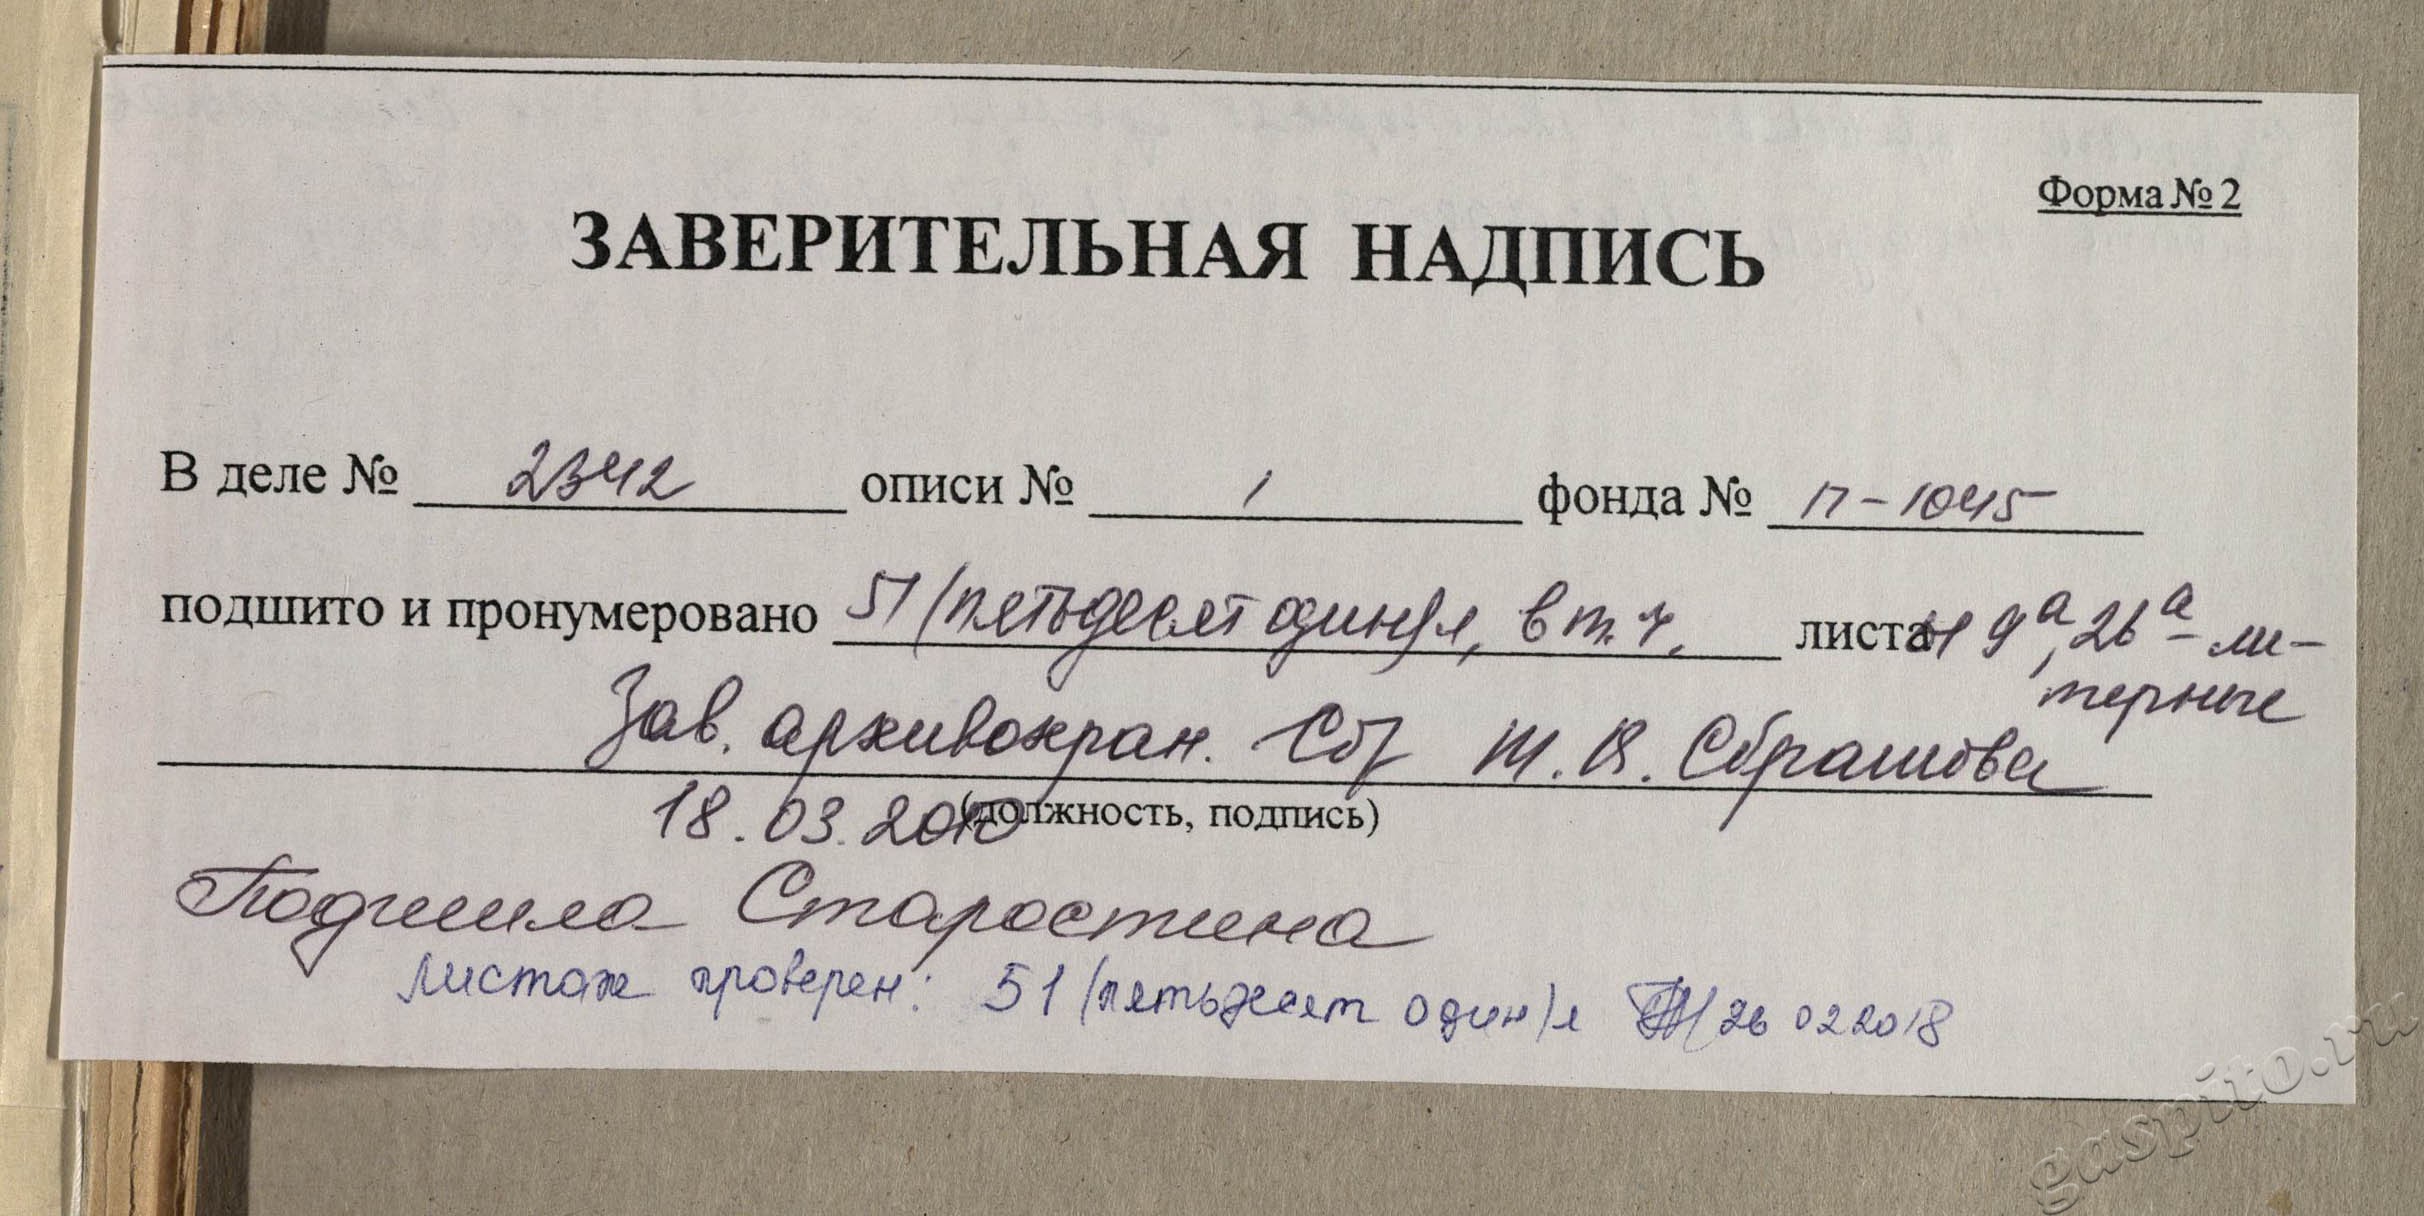 Форма № 2
ЗАВЕРИТЕЛЬНАЯ НАДПИСЬ
В деле № 2342 описи № 1 фонда № П-1045
подшито и пронумеровано 51 (пятьдесят один) л, в т.ч. листы 9а, 26а - ли-
терные
Зав. архивохран. Т.В. Сбрашова
(должность, подпись)
18.03.2010
Подшила Старостина
Листаж проверен: 51 (пятьдесят один) л 26 02 2018
gaspito.ru